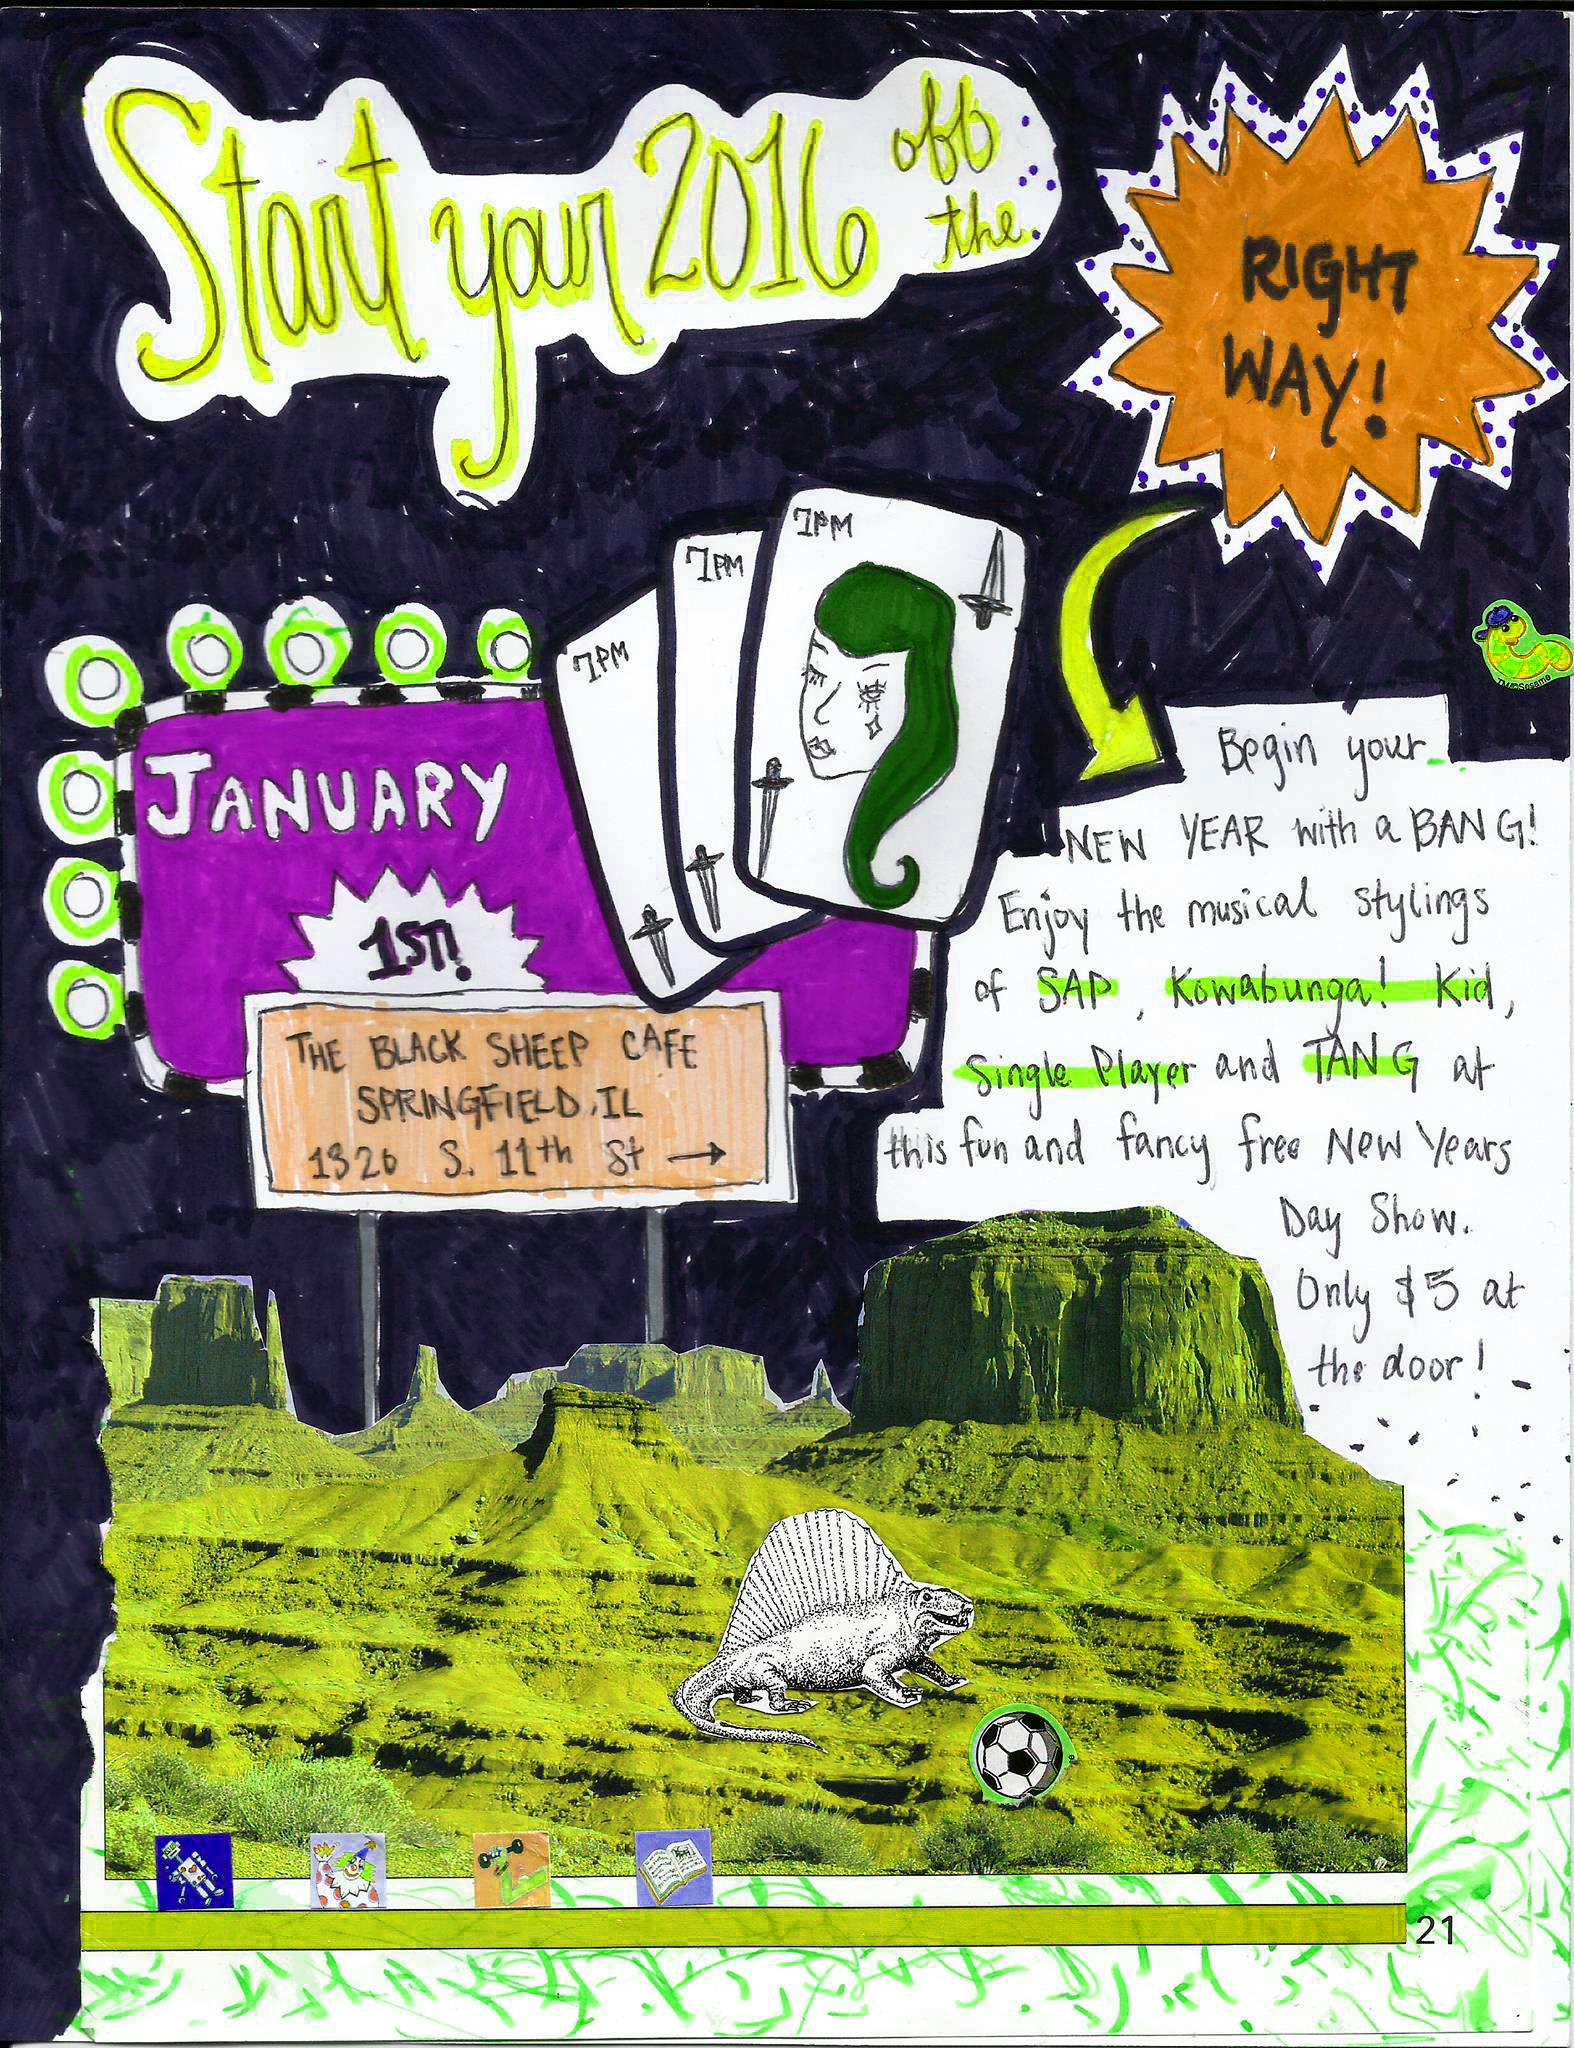 Start your 2016 off
the
RIGHT
WAY!
7PM
7PM
7PM
JANUARY
1ST!
THE BLACK SHEEP CAFE
SPRINGFIELD, IL
1320 S. 11th St →
Begin your
NEW YEAR with a BANG!
Enjoy the musical stylings
of SAP, Kowabunga! Kid,
Single Player and TANG at
this fun and fancy free New Years
Day Show.
Only $5 at
the door!
21